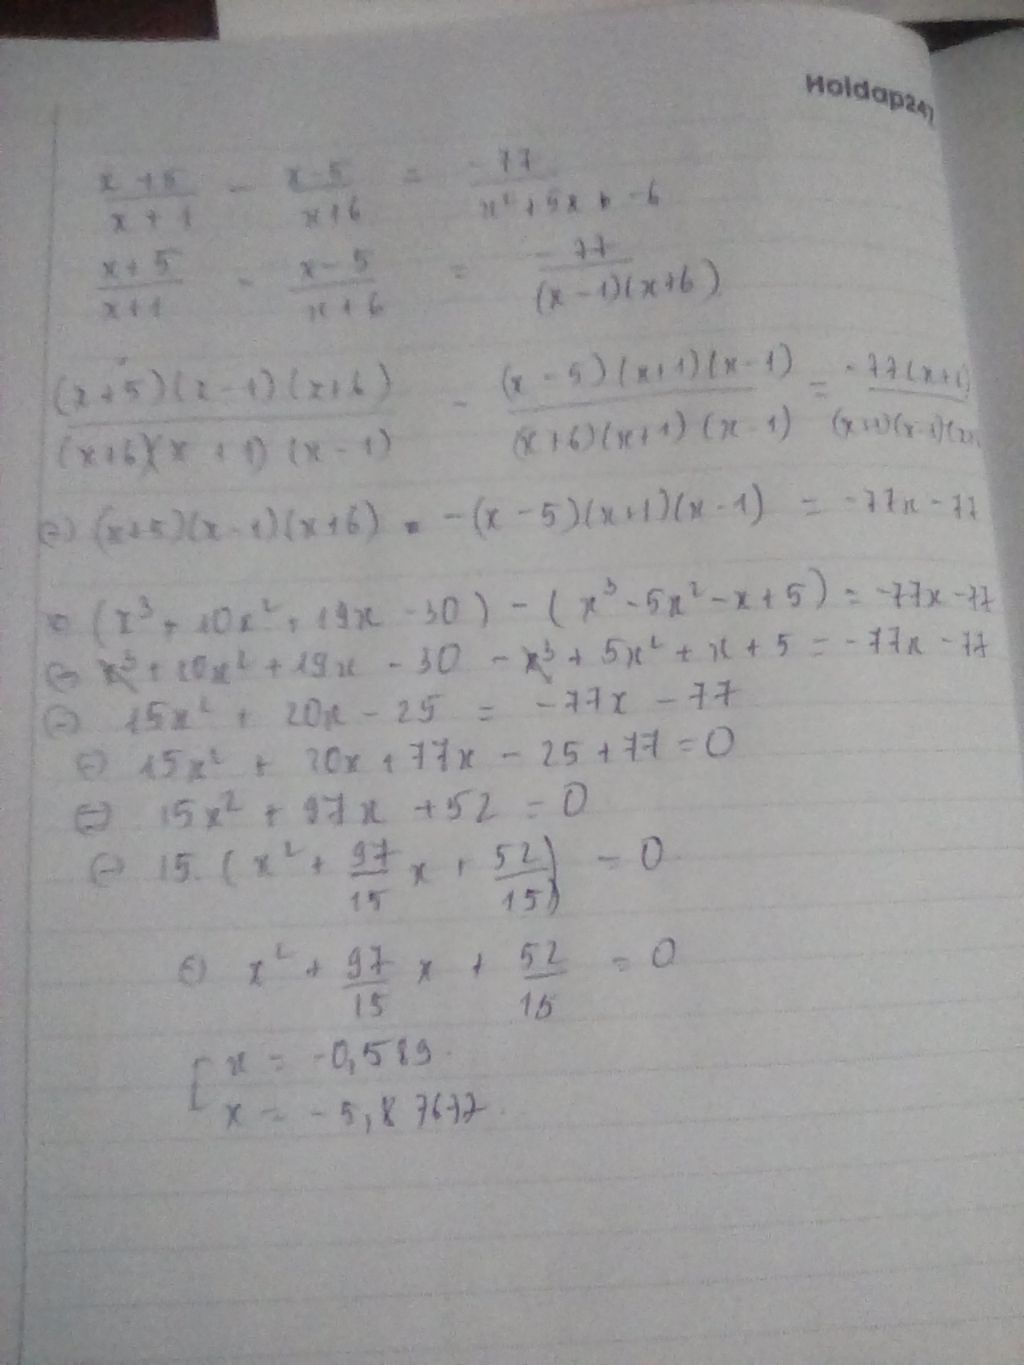 Hoidap247
x+5/x+1 - x-5/x+6 = -77/x²+5x+-6
x+5/x+1 - x-5/x+6 = -77/(x-1)(x+6)
(x+5)(x-1)(x+6)/(x+6)(x+1)(x-1) - (x-5)(x+1)(x-1)/(x+6)(x+1)(x-1) = -77(x+1)/(x+1)(x-1)(x+
(=) (x+5)(x-1)(x+6) - (x-5)(x+1)(x-1) = -77x-77
(=) (x³+10x²+19x-30) - (x³-5x²-x+5) = -77x-77
(=) x³+10x²+19x-30 - x³+5x²+x+5 = -77x-77
(=) 15x² + 20x - 25 = -77x - 77
(=) 15x² + 20x + 77x - 25 + 77 = 0
(=) 15x² + 97x + 52 = 0
(=) 15.(x² + 97/15 x + 52/15) = 0
(=) x² + 97/15 x + 52/15 = 0
[ x = -0,589
x = -5,87677